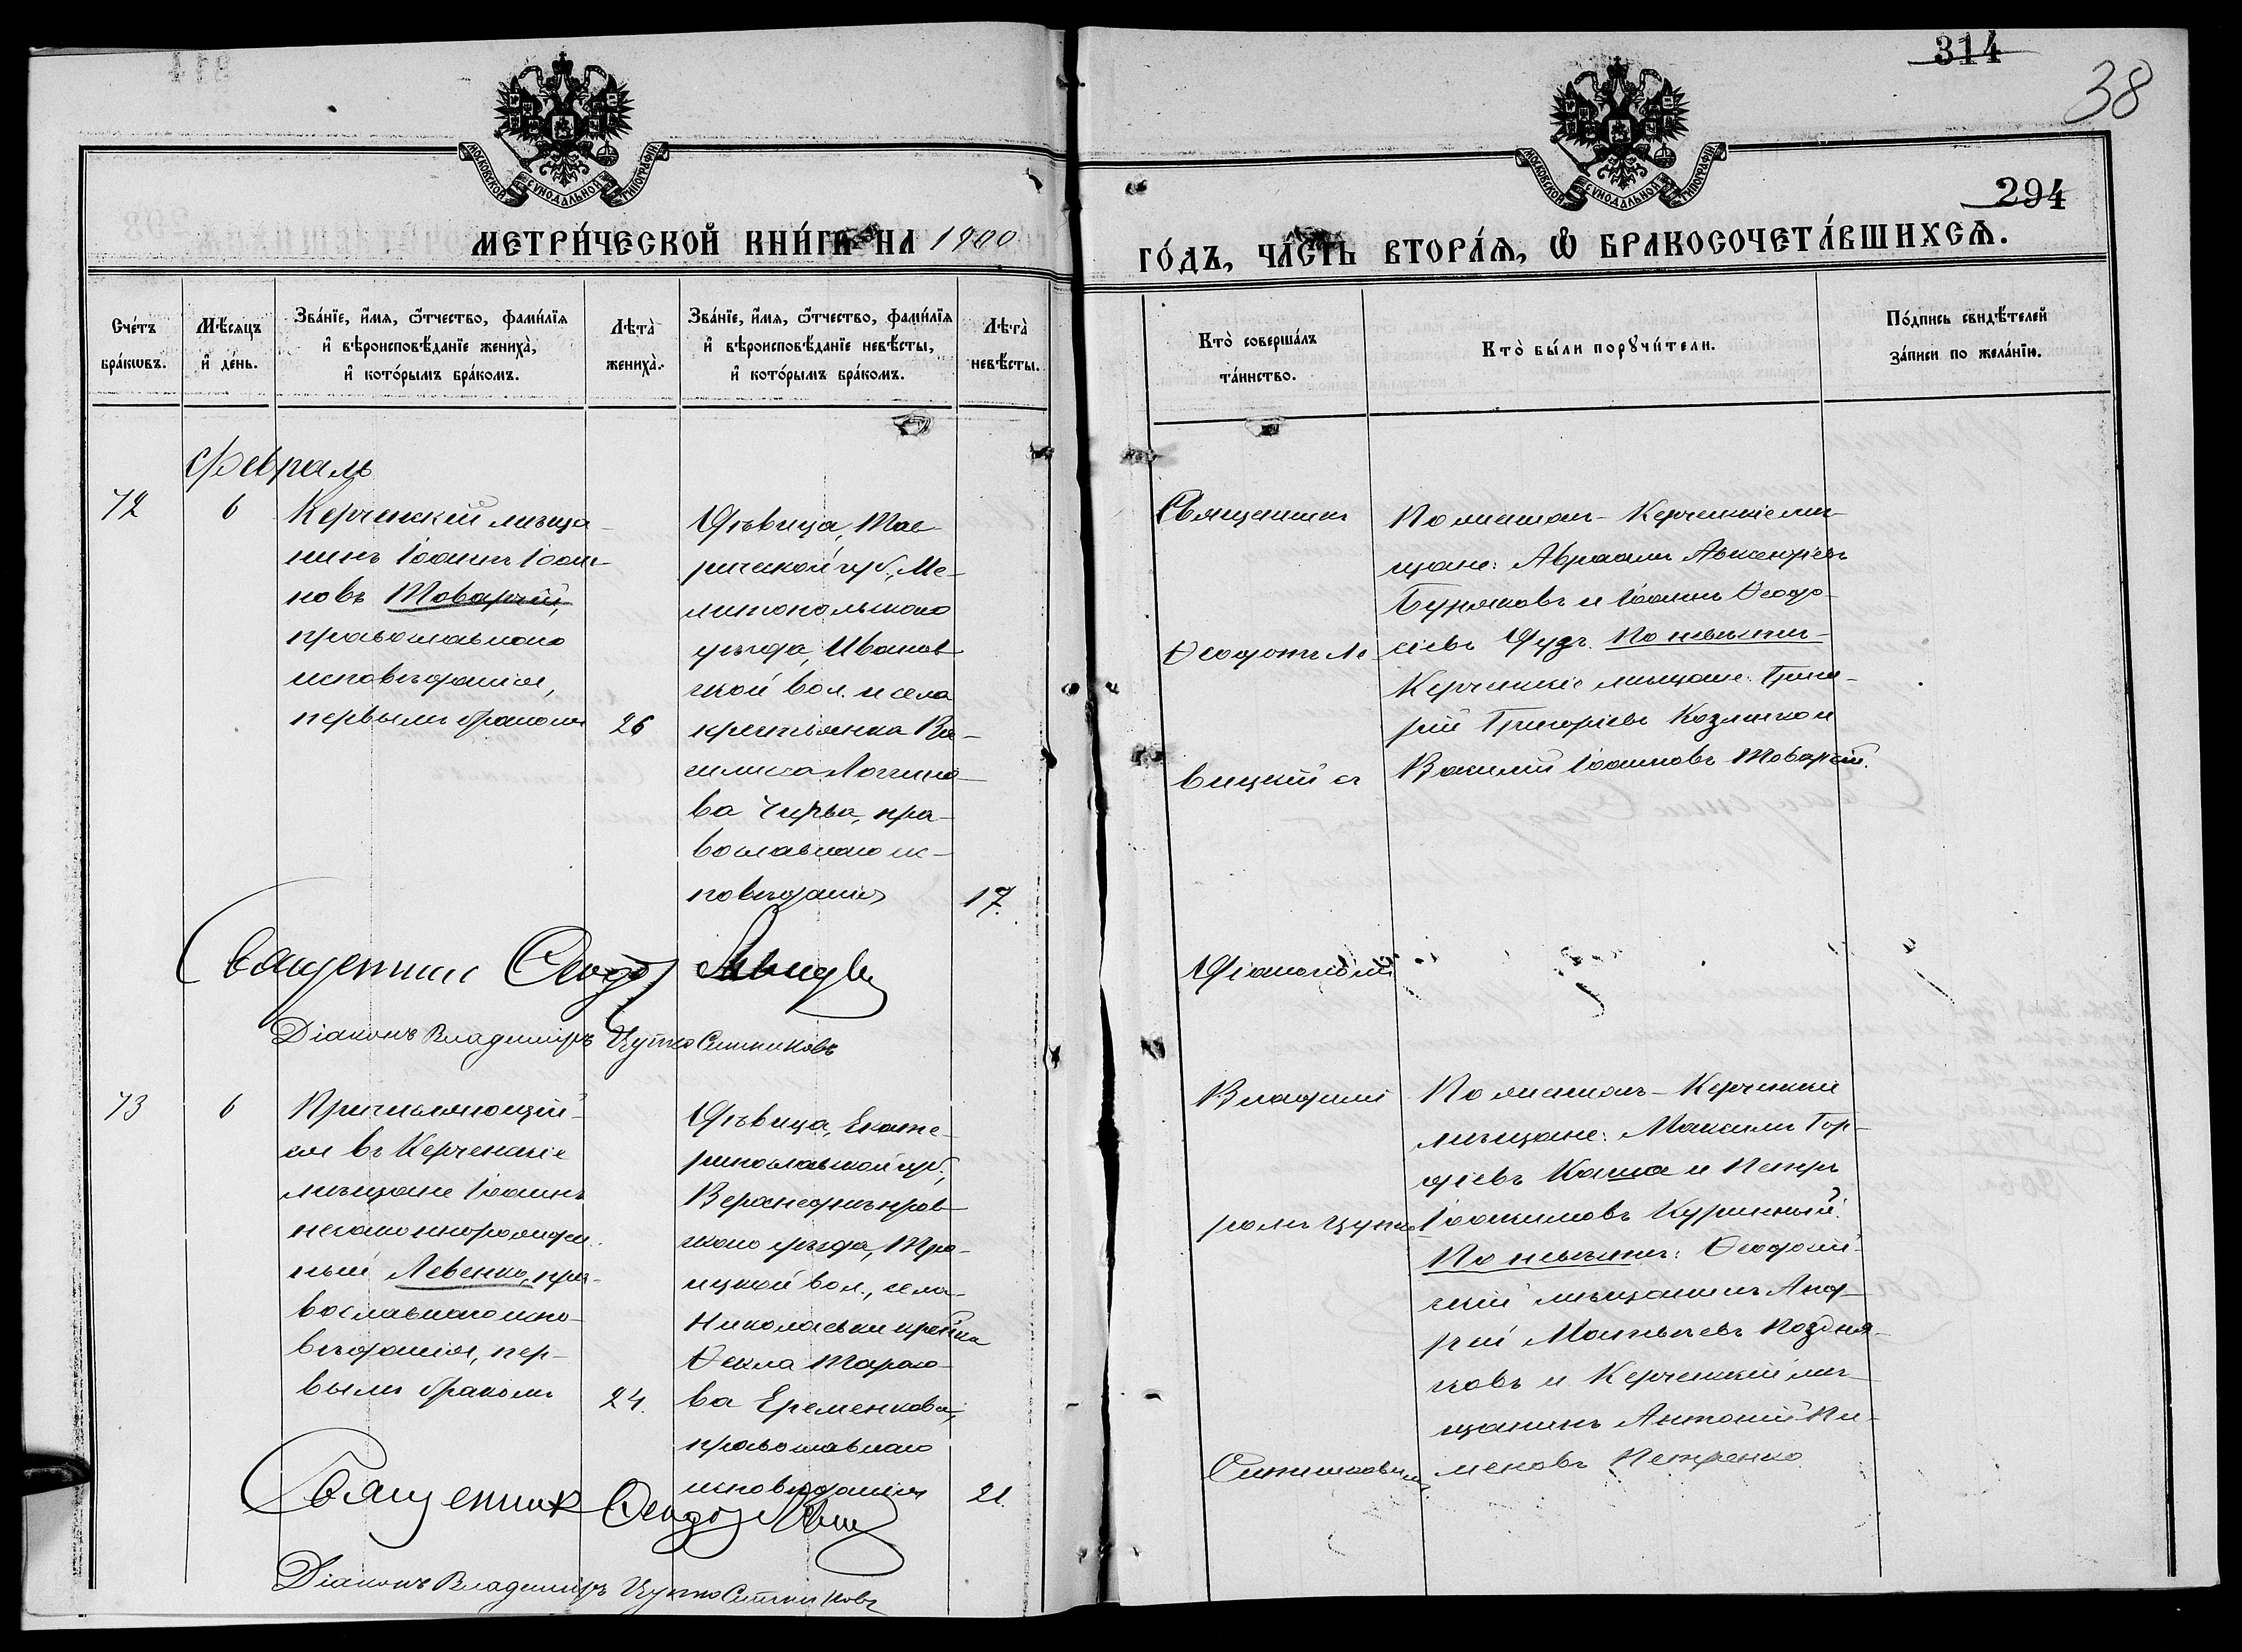 314
38
294
МОСКОВСКОЙ СУНОДАЛЬНОЙ ТИПОГРАФІИ
МОСКОВСКОЙ СУНОДАЛЬНОЙ ТИПОГРАФІИ
МЕТРИ́ЧЕСКОЙ КНИ́ГИ НА 1900
ГО́ДЪ, ЧА́СТЬ ВТОРА́Я, Ѡ БРАКОСОЧЕТА́ВШИХСЯ.
Сче́тъ
бра́кѡвъ.
Мѣ́сяцъ
и҆ де́нь.
Зва́нїе, и҆́мя, ѻ҆́тчество, фами́лїя
и҆ вѣроисповѣ́данїе жениха̀,
и҆ кото́рымъ бра́комъ.
Лѣта̀
жениха̀.
Зва́нїе, и҆́мя, ѻ҆́тчество, фами́лїя
и҆ вѣроисповѣ́данїе невѣ́сты,
и҆ кото́рымъ бра́комъ.
Лѣта̀
невѣ́сты.
Кто̀ соверша́лъ
та́инство.
Кто̀ бы́ли порꙋчи́тели.
По́дпись свидѣ́телей
за́писи по жела́нїю.
Февраль
72
6
Керченскій мѣща-
нинъ Іоаннъ Іоан-
новъ Товарчій,
православнаго
исповѣданія,
первымъ бракомъ
26
Дѣвица, Тав-
рической губ., Ме-
литопольскаго
уѣзда, Иванов-
ской вол. и села
крестьянка Ва-
силисса Логгино-
ва Чирва, пра-
вославнаго ис-
повѣданія
17.
Священникъ
Ѳеодотъ Ле-
вицкій съ
Діакономъ
Владимі-
ромъ Цутко
Ситниковымъ.
По женихѣ - Керченскіе мѣ-
щане: Авраамъ Авксентіевъ
Буряковъ и Іоаннъ Ѳеодо-
сіевъ Дудъ. По невѣстѣ -
Керченскіе мѣщане: Григо-
рій Григоріевъ Козленко и
Василій Іоанновъ Товарчій.
Священник
Діаконъ Владиміръ Цутко Ситниковъ
73
6
Причисляющій-
ся въ Керченскіе
мѣщане Іоаннъ
незаконнорожден-
ный Левенко, пра-
вославнаго испо-
вѣданія, пер-
вымъ бракомъ
24.
Дѣвица, Екате-
ринославской губ.,
Верхнеднѣпров-
скаго уѣзда, Тро-
ицкой вол., села
Николаевки кр-нка
Ѳекла Тарасо-
ва Еременкова,
православнаго
исповѣданія
21.
По женихѣ - Керченскіе
мѣщане: Максимъ Гор-
діевъ Каша и Петръ
Іоакимовъ Куринный.
По невѣстѣ: Ѳеодосій-
скій мѣщанинъ Анд-
рей Матвѣевъ Поздня-
ковъ и Керченскій мѣ-
щанинъ Антоній Пи-
меновъ Петренко
Священник
Діаконъ Владиміръ Цутко Ситниковъ